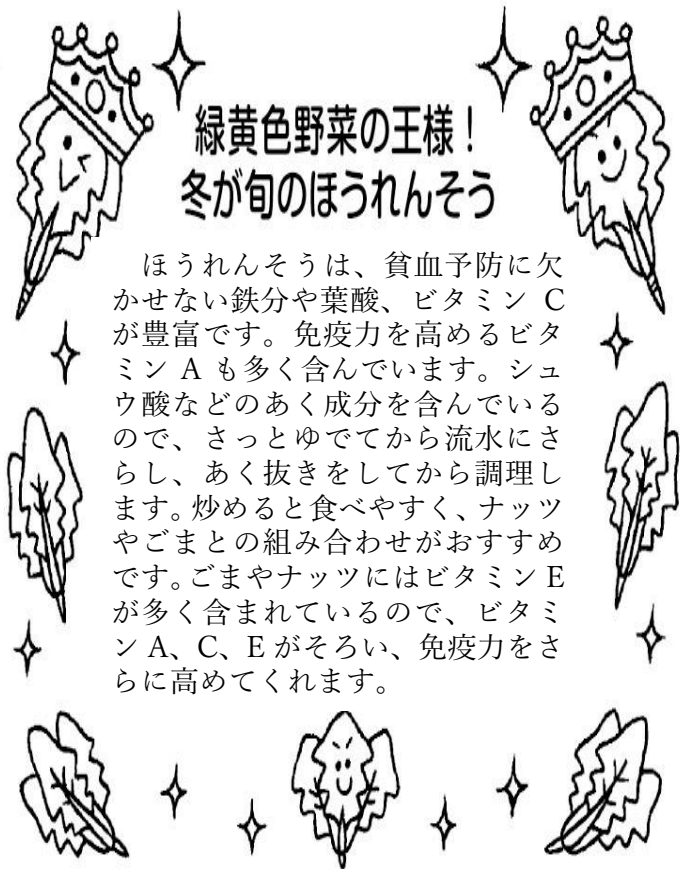 緑黄色野菜の王様！
冬が旬のほうれんそう
　ほうれんそうは、貧血予防に欠
かせない鉄分や葉酸、ビタミン C
が豊富です。免疫力を高めるビタ
ミン A も多く含んでいます。シュ
ウ酸などのあく成分を含んでいる
ので、さっとゆでてから流水にさ
らし、あく抜きをしてから調理し
ます。炒めると食べやすく、ナッツ
やごまとの組み合わせがおすすめ
です。ごまやナッツにはビタミン E
が多く含まれているので、ビタミ
ン A、C、E がそろい、免疫力をさ
らに高めてくれます。